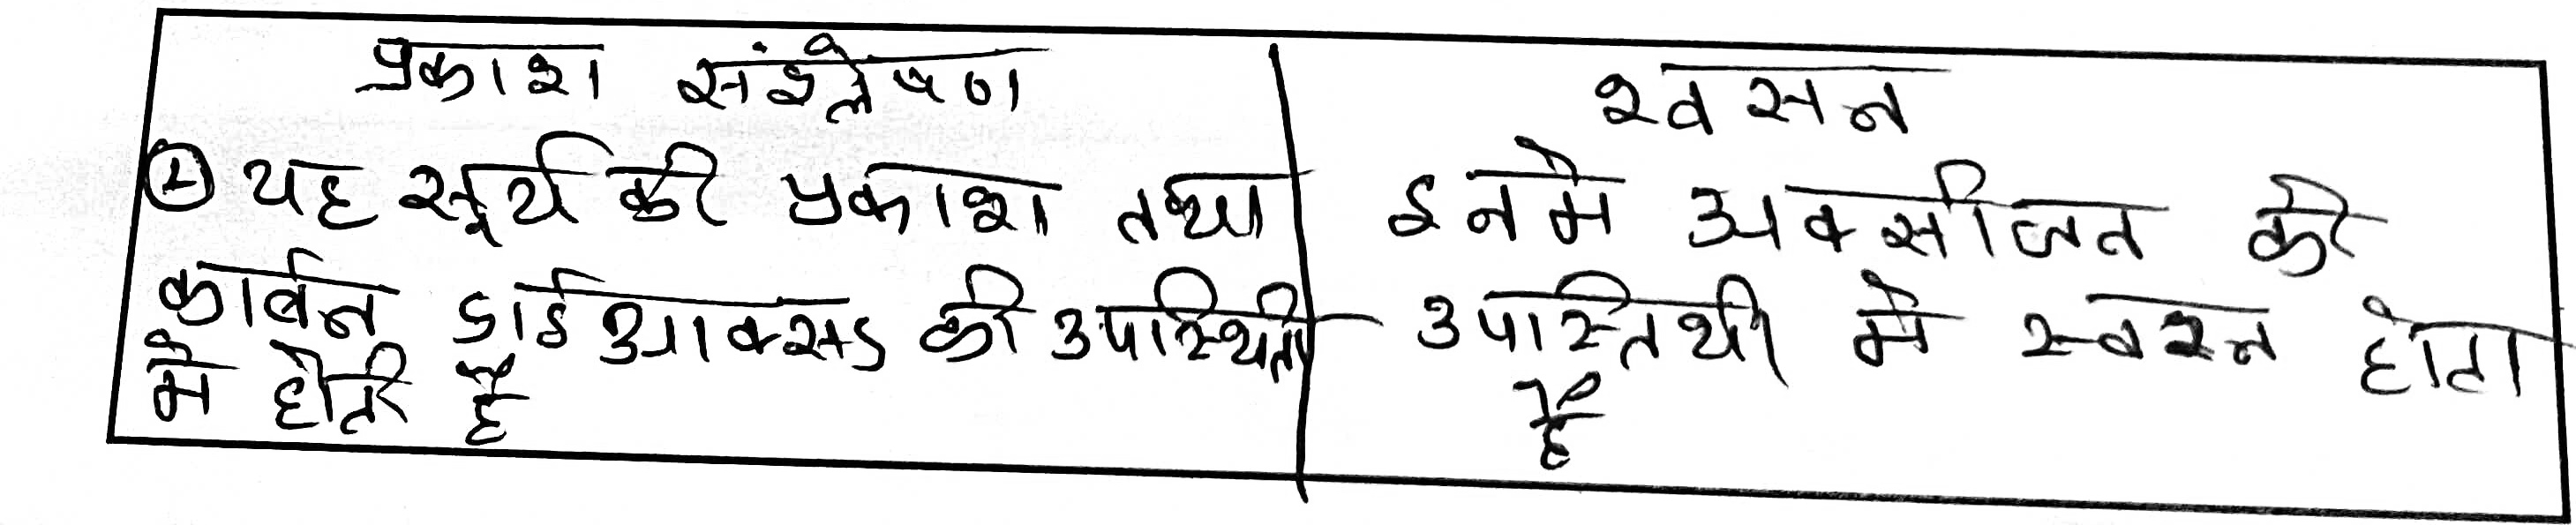 प्रकाश संश्लेषण
① यह सूर्य की प्रकाश तथा
कार्बन डाईआक्सड की उपस्थिती
मे होती है
श्वसन
इनमे अक्सीजन की
उपास्तिथी मे स्वशन होता
है